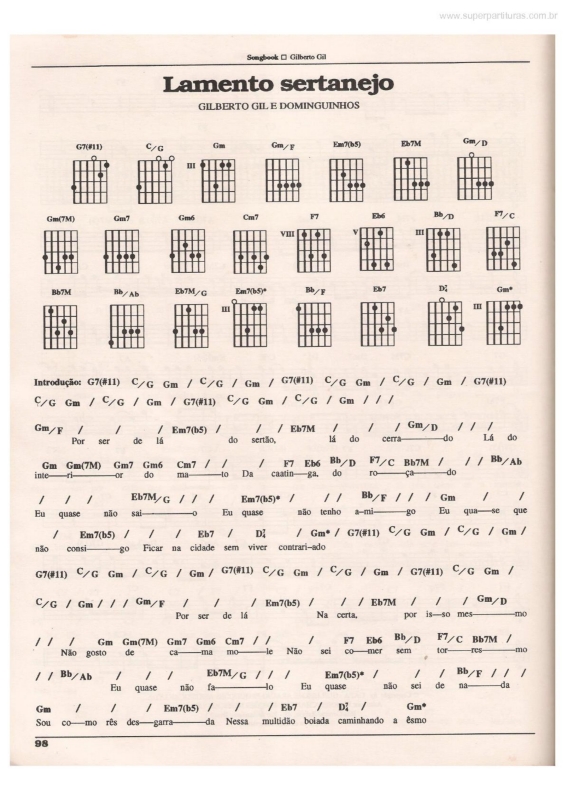 www.superpartituras.com.br
Songbook □ Gilberto Gil
Lamento sertanejo
GILBERTO GIL E DOMINGUINHOS
G7(#11) C/G Gm Gm/F Em7(b5) Eb7M Gm/D
III
Gm(7M) Gm7 Gm6 Cm7 F7 Eb6 Bb/D F7/C
VIII V III
Bb7M Bb/Ab Eb7M/G Em7(b5)* Bb/F Eb7 D7/4 Gm*
III III
Introdução: G7(#11) C/G Gm / C/G / Gm / G7(#11) C/G Gm / C/G / Gm / G7(#11)
C/G Gm / C/G / Gm / G7(#11) C/G Gm / C/G / Gm / / /
Gm/F / / / Em7(b5) / / / Eb7M / / / Gm/D / / /
Por ser de lá do sertão, lá do cerra——do Lá do
Gm Gm(7M) Gm7 Gm6 Cm7 / / / F7 Eb6 Bb/D F7/C Bb7M / / / Bb/Ab
inte——ri——or do ma——to Da caatin—ga, do ro——ça——do
/ / / Eb7M/G / / / Em7(b5)* / / / Bb/F / / / Gm / /
Eu quase não sai——o Eu quase não tenho a—mi——go Eu qua—se que
/ Em7(b5) / / / Eb7 / D7/4 / Gm* / G7(#11) C/G Gm / C/G / Gm /
não consi——go Ficar na cidade sem viver contrari—ado
G7(#11) C/G Gm / C/G / Gm / G7(#11) C/G Gm / C/G / Gm / G7(#11) C/G Gm /
C/G / Gm / / / Gm/F / / / Em7(b5) / / / Eb7M / / / Gm/D
Por ser de lá Na certa, por is—so mes——mo
/ / / Gm Gm(7M) Gm7 Gm6 Cm7 / / / F7 Eb6 Bb/D F7/C Bb7M /
Não gosto de ca——ma mo——le Não sei co—mer sem tor——res——mo
/ / Bb/Ab / / / Eb7M/G / / / Em7(b5)* / / / Bb/F / / /
Eu quase não fa——lo Eu quase não sei de na——da
Gm / / / Em7(b5) / / / Eb7 / D7/4 / Gm*
Sou co—mo rês des—garra——da Nessa multidão boiada caminhando a êsmo
98